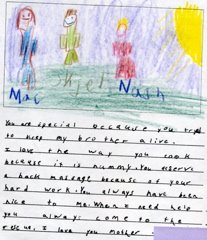 Mac Skyel Nash
You are special because you tryed
to keep my brother alive.
I love the way you cook
because it is nummy. You deserve
a back massage because of your
hard work. You always have been
nice to me. When I need help
you alwas come to the
rescue. I love you mother